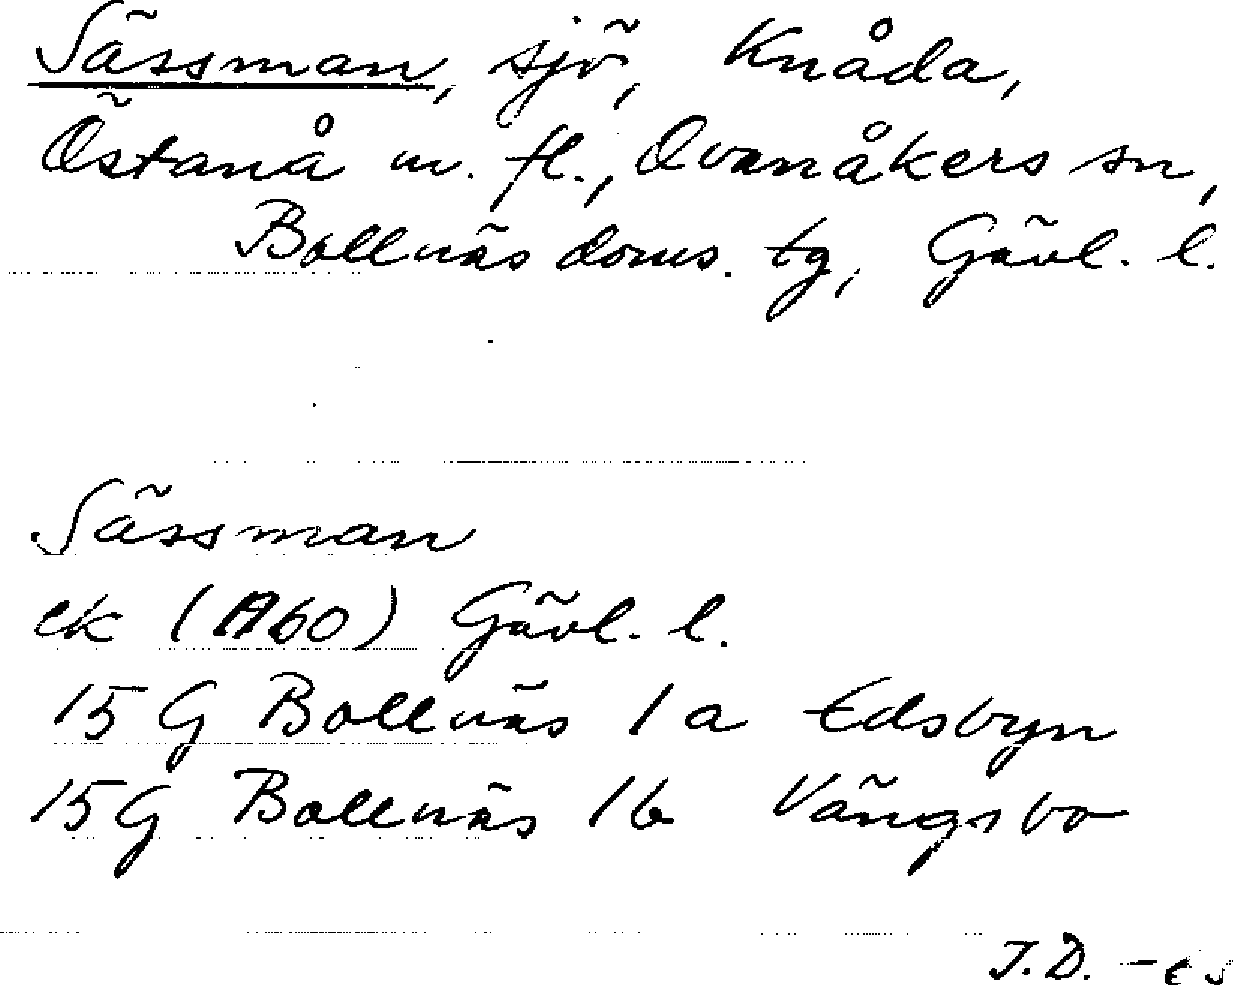 Sässman, sjö, Knåda,
Östanå m. fl., Ovanåkers sn,
Bollnäs doms. tg, Gävl. l.
Sässman
ek (A60) Gävl. l.
15 G Bollnäs 1 a Edsbyn
15G Bollnäs 1b Vängsbo
J.D.